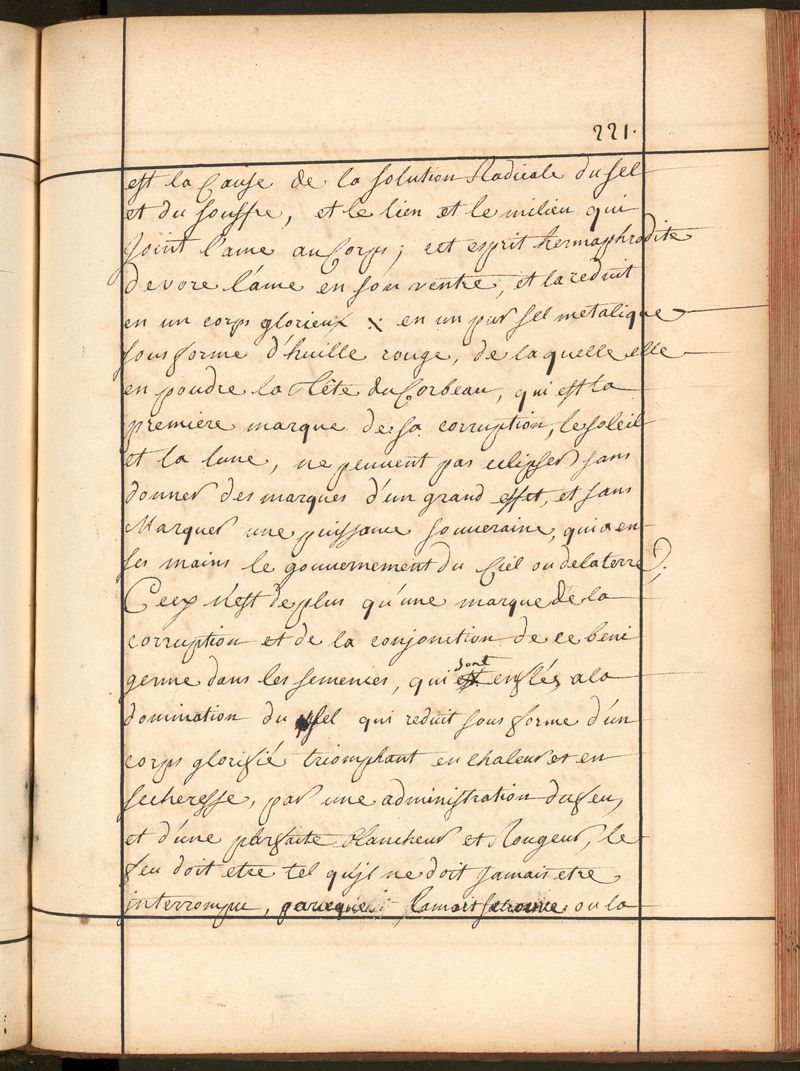 221.
est la Cause de la solution Radicale du sel
et du souffre, et le lien et le milieu qui
Joint l'ame au Corps; cet esprit hermaphrodite
devore l'ame en son ventre, et la reduit
en un corps glorieux en un pur sel metalique
sous forme d'huille rouge, de laquelle elle
en poudre la Tête du Corbeau, qui est la
premiere marque de sa corruption, le soleil
et la lune, ne peuvent pas eclipser sans
donner des marques d'un grand effet, et sans
Marquer une puissance souveraine, qui a en
ses mains le gouvernement du Ciel ou de la terre;
Cecy n'est de plus qu'une marque de la
corruption et de la conjonction de ce beni
germe dans les semences, qui sont enflés a la
domination du sel qui reduit sous forme d'un
corps glorifié triomphant en chaleur et en
secheresse, par une administration du feu,
et d'une parfaite blancheur et Rougeur, le
feu doit etre tel qu'jl ne doit jamais etre
jnterrompu, parceque la mort se trouve ou la